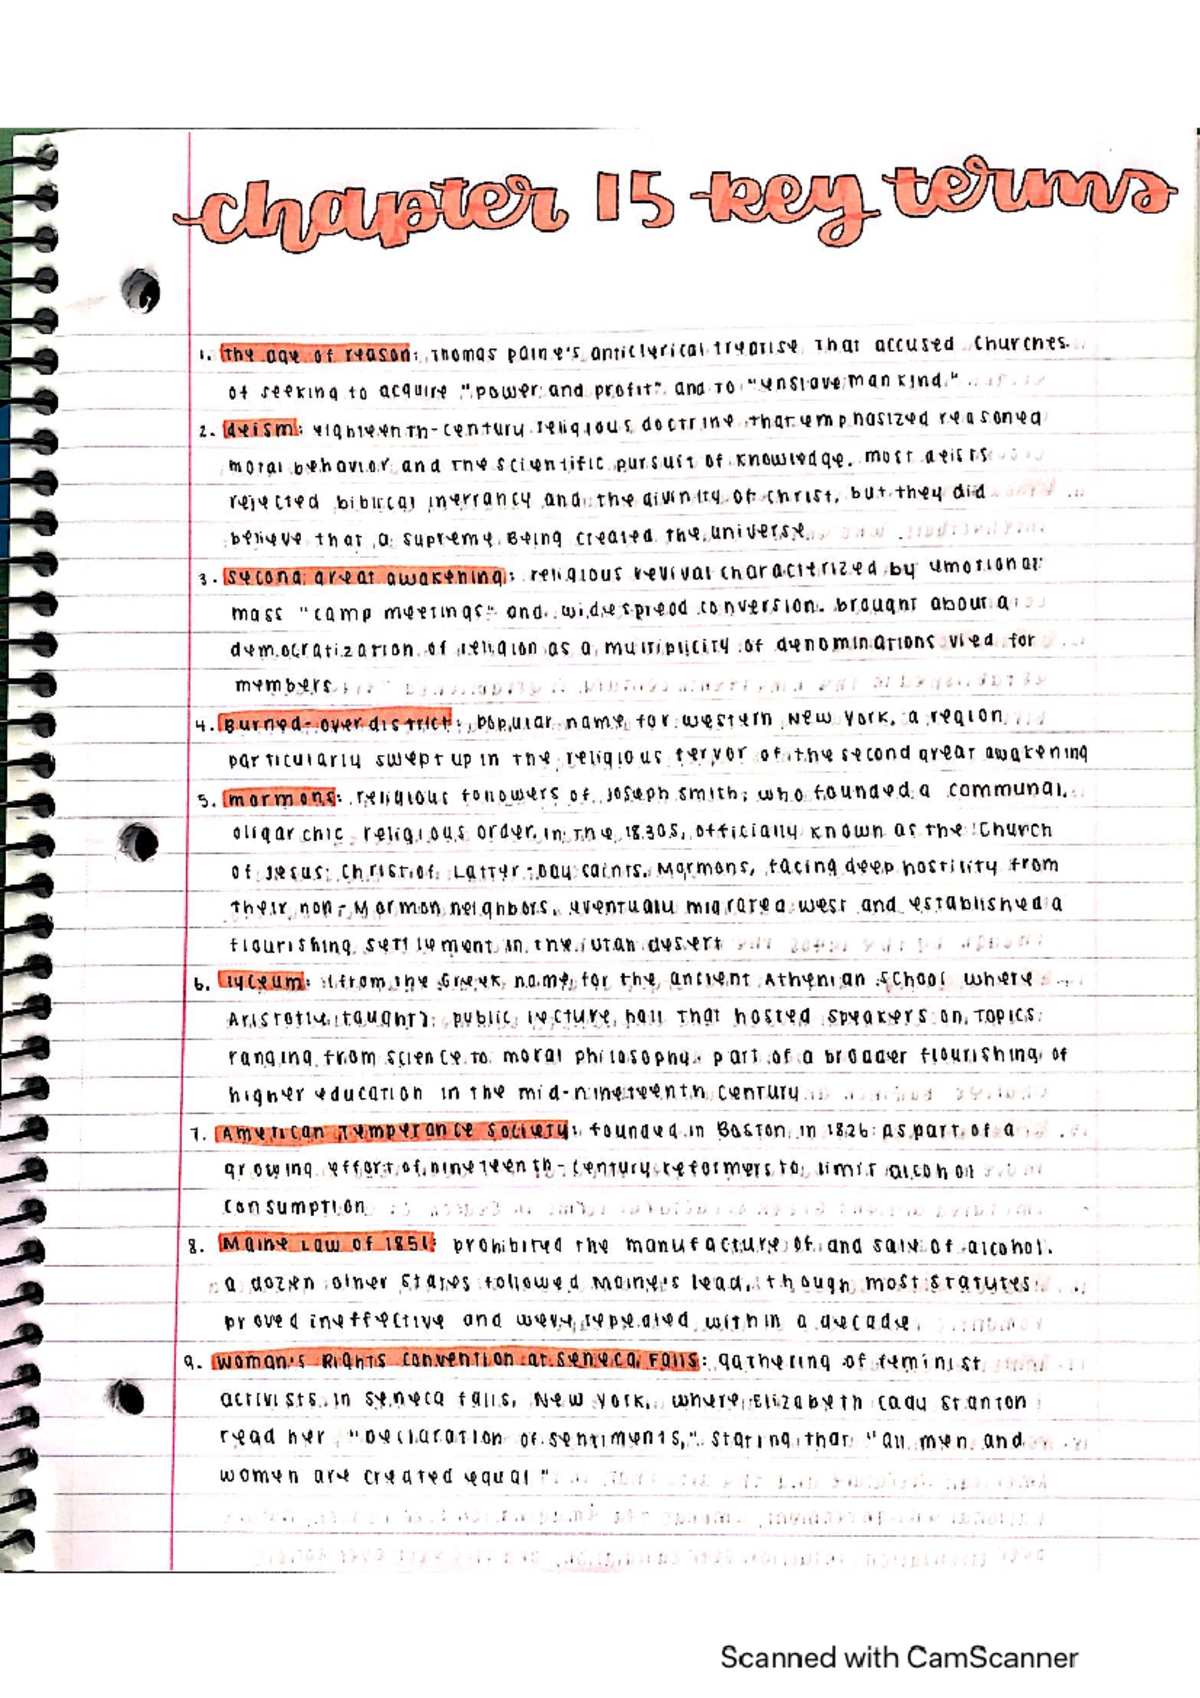 chapter 15 key terms
1. the age of reason: Thomas Paine's anticlerical treatise that accused churches
of seeking to acquire "power and profit" and to "enslave mankind."
2. deism: eighteenth-century religious doctrine that emphasized reasoned
moral behavior and the scientific pursuit of knowledge. most deists
rejected biblical inerrancy and the divinity of Christ, but they did
believe that a supreme Being created the universe
3. second great awakening: religious revival characterized by emotional
mass "camp meetings" and widespread conversion. brought about a
democratization of religion as a multiplicity of denominations vied for
members
4. Burned-over district: popular name for western New York, a region
particularly swept up in the religious fervor of the second great awakening
5. mormons: religious followers of Joseph Smith, who founded a communal,
oligarchic religious order in the 1830s, officially known as the Church
of Jesus Christ of Latter-Day Saints. Mormons, facing deep hostility from
their non-Mormon neighbors, eventually migrated west and established a
flourishing settlement in the Utah desert
6. lyceum: (from the Greek name for the ancient Athenian school where
Aristotle taught) public lecture hall that hosted speakers on topics
ranging from science to moral philosophy. part of a broader flourishing of
higher education in the mid-nineteenth century
7. American Temperance Society: founded in Boston in 1826 as part of a
growing effort of nineteenth-century reformers to limit alcohol
consumption
8. Maine Law of 1851: prohibited the manufacture of and sale of alcohol.
a dozen other states followed Maine's lead, though most statutes
proved ineffective and were repealed within a decade
9. Woman's Rights Convention at Seneca Falls: gathering of feminist
activists in Seneca Falls, New York, where Elizabeth Cady Stanton
read her "Declaration of Sentiments," stating that "all men and
women are created equal"
Scanned with CamScanner